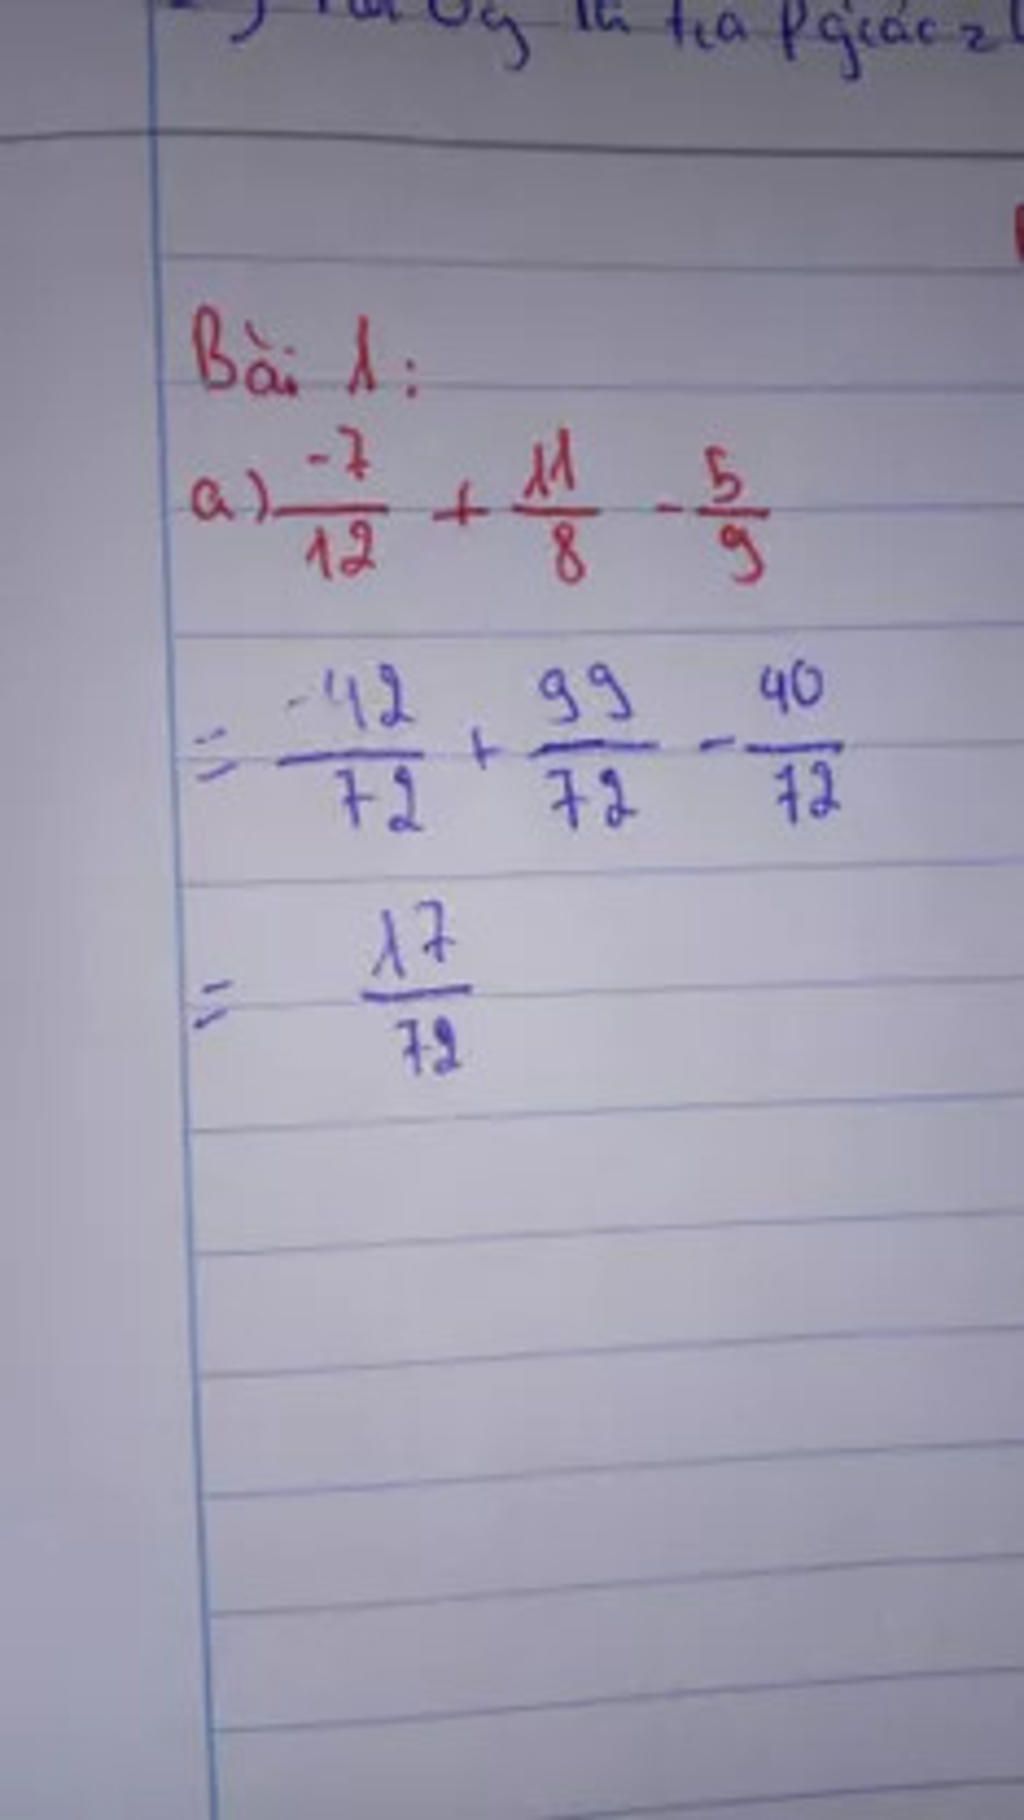 tia pgiác
Bài 1:
a) -7/12 + 11/8 - 5/9
= -42/72 + 99/72 - 40/72
= 17/72